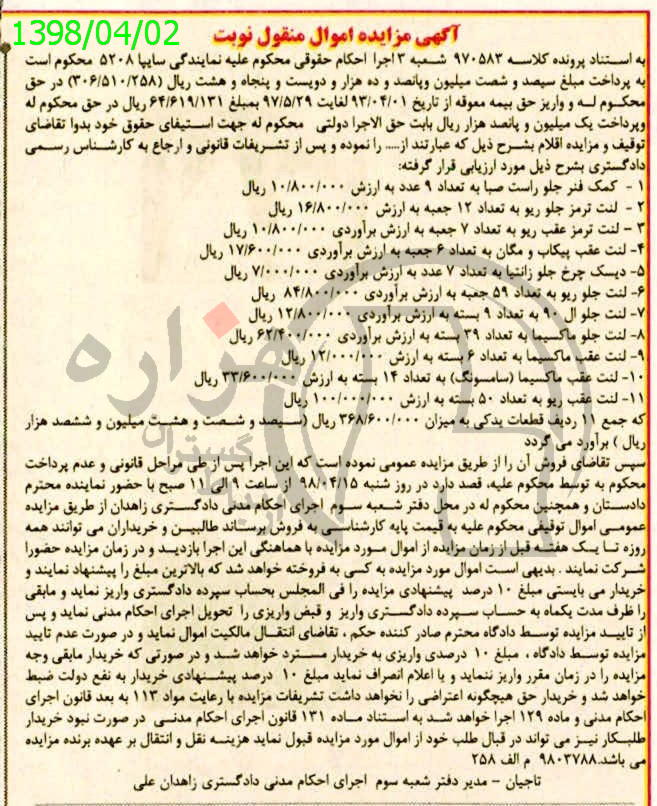 1398/04/02
آگهی مزایده اموال منقول نوبت
به استناد پرونده کلاسه ۹۷۰۵۸۳ شعبه ۳ اجرا احکام حقوقی محکوم علیه نمایندگی سایپا ۵۲۰۸ محکوم است
به پرداخت مبلغ سیصد و شصت میلیون وپانصد و ده هزار و دویست و پنجاه و هشت ریال (۳۰۶/۵۱۰/۲۵۸) در حق
محکوم له و واریز حق بیمه معوقه از تاریخ ۹۳/۰۴/۰۱ لغایت ۹۷/۵/۲۹ بمبلغ ۶۴/۶۱۹/۱۳۱ ریال در حق محکوم له
وپرداخت یک میلیون و پانصد هزار ریال بابت حق الاجرا دولتی محکوم له جهت استیفای حقوق خود بدوا تقاضای
توقیف و مزایده اقلام بشرح ذیل که عبارتند از..... را نموده و پس از تشریفات قانونی و ارجاع به کارشناس رسمی
دادگستری بشرح ذیل مورد ارزیابی قرار گرفته:
۱ - کمک فنر جلو راست صبا به تعداد ۹ عدد به ارزش ۱۰/۸۰۰/۰۰۰ ریال
۲ - لنت ترمز جلو ریو به تعداد ۱۲ جعبه به ارزش ۱۶/۸۰۰/۰۰۰ ریال
۳ - لنت ترمز عقب ریو به تعداد ۷ جعبه به ارزش برآوردی ۱۰/۸۰۰/۰۰۰ ریال
۴- لنت عقب پیکاب و مگان به تعداد ۶ جعبه به ارزش برآوردی ۱۷/۶۰۰/۰۰۰ ریال
۵- دیسک چرخ جلو زانتیا به تعداد ۷ عدد به ارزش برآوردی ۷/۰۰۰/۰۰۰ ریال
۶- لنت جلو ریو به تعداد ۵۹ جعبه به ارزش برآوردی ۸۴/۸۰۰/۰۰۰ ریال
۷- لنت جلو ال ۹۰ به تعداد ۹ بسته به ارزش برآوردی ۱۲/۸۰۰/۰۰۰ ریال
۸- لنت جلو ماکسیما به تعداد ۳۹ بسته به ارزش برآوردی ۶۲/۴۰۰/۰۰۰ ریال
۹- لنت عقب ماکسیما به تعداد ۶ بسته به ارزش ۱۲/۰۰۰/۰۰۰ ریال
۱۰- لنت عقب ماکسیما (سامسونگ) به تعداد ۱۴ بسته به ارزش ۳۳/۶۰۰/۰۰۰ ریال
۱۱- لنت عقب ریو به تعداد ۵۰ بسته به ارزش ۱۰۰/۰۰۰/۰۰۰ ریال
که جمع ۱۱ ردیف قطعات یدکی به میزان ۳۶۸/۶۰۰/۰۰۰ ریال (سیصد و شصت و هشت میلیون و ششصد هزار
ریال ) برآورد می گردد
سپس تقاضای فروش آن را از طریق مزایده عمومی نموده است که این اجرا پس از طی مراحل قانونی و عدم پرداخت
محکوم به توسط محکوم علیه، قصد دارد در روز شنبه ۹۸/۰۴/۱۵ از ساعت ۹ الی ۱۱ صبح با حضور نماینده محترم
دادستان و همچنین محکوم له در محل دفتر شعبه سوم اجرای احکام مدنی دادگستری زاهدان از طریق مزایده
عمومی اموال توقیفی محکوم علیه به قیمت پایه کارشناسی به فروش برساند طالبین و خریداران می توانند همه
روزه تا یک هفته قبل از زمان مزایده از اموال مورد مزایده با هماهنگی این اجرا بازدید و در زمان مزایده حضورا
شرکت نمایند . بدیهی است اموال مورد مزایده به کسی به فروخته خواهد شد که بالاترین مبلغ را پیشنهاد نمایند و
خریدار می بایستی مبلغ ۱۰ درصد پیشنهادی مزایده را فی المجلس بحساب سپرده دادگستری واریز نماید و مابقی
را ظرف مدت یکماه به حساب سپرده دادگستری واریز و قبض واریزی را تحویل اجرای احکام مدنی نماید و پس
از تایید مزایده توسط دادگاه محترم صادر کننده حکم ، تقاضای انتقال مالکیت اموال نماید و در صورت عدم تایید
مزایده توسط دادگاه ، مبلغ ۱۰ درصدی واریزی به خریدار مسترد خواهد شد و در صورتی که خریدار مابقی وجه
مزایده را در زمان مقرر واریز ننماید و یا اعلام انصراف نماید مبلغ ۱۰ درصد پیشنهادی خریدار به نفع دولت ضبط
خواهد شد و خریدار حق هیچگونه اعتراضی را نخواهد داشت تشریفات مزایده با رعایت مواد ۱۱۳ به بعد قانون اجرای
احکام مدنی و ماده ۱۲۹ اجرا خواهد شد به استناد ماده ۱۳۱ قانون اجرای احکام مدنی در صورت نبود خریدار
طلبکار نیز می تواند در قبال طلب خود از اموال مورد مزایده قبول نماید هزینه نقل و انتقال بر عهده برنده مزایده
می باشد.۹۸۰۳۷۸۸ م الف ۲۵۸
تاجیان - مدیر دفتر شعبه سوم اجرای احکام مدنی دادگستری زاهدان علی